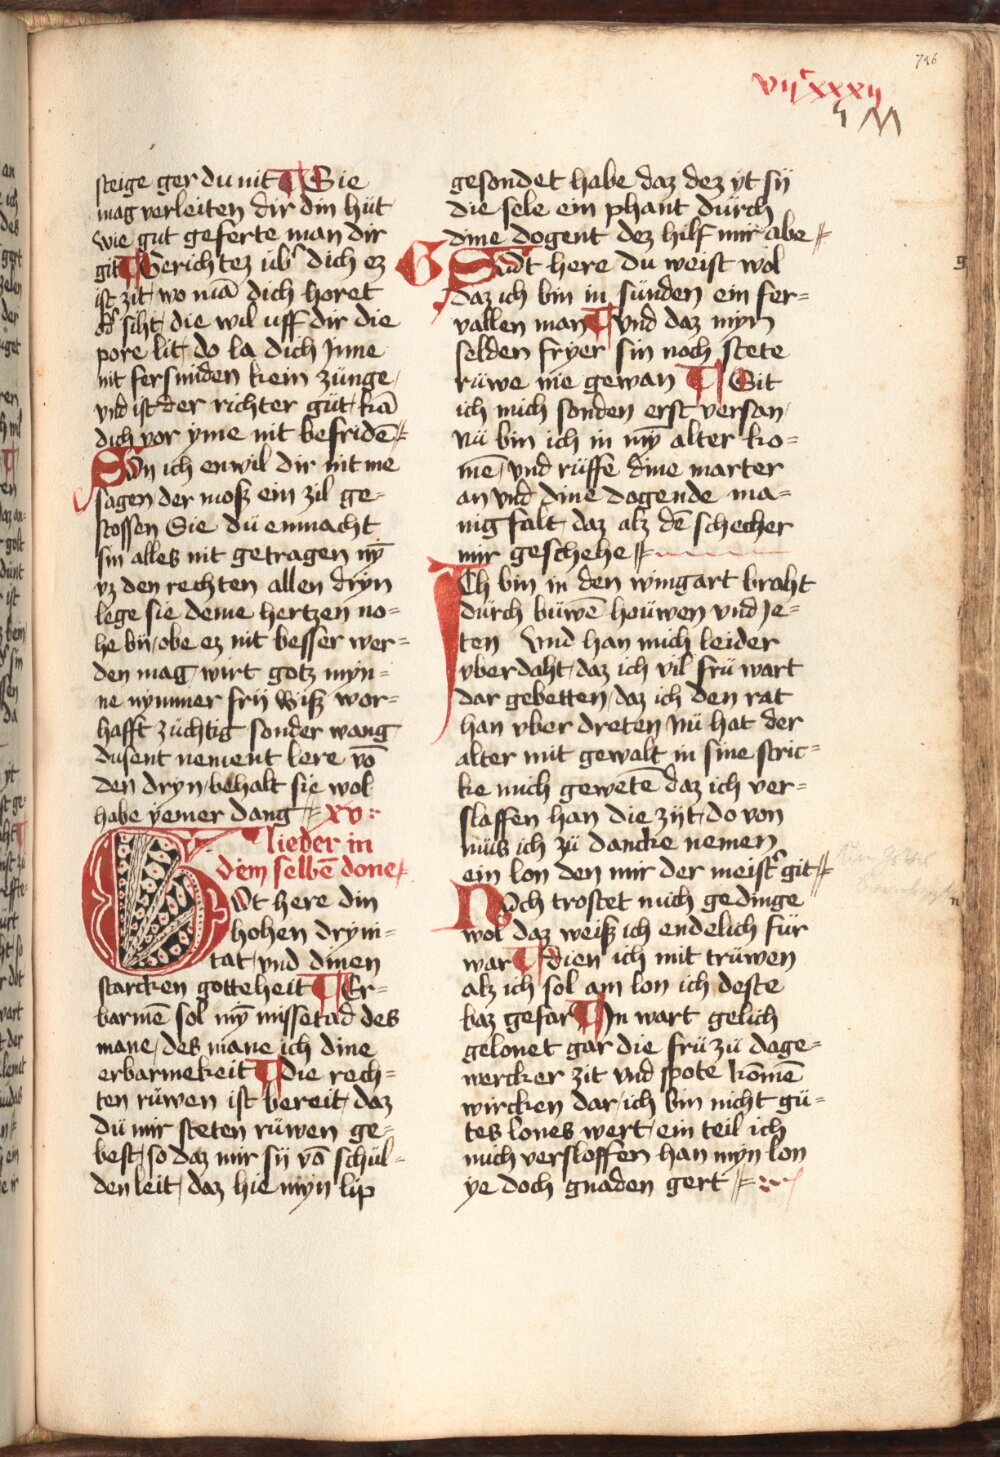 746
vijcxxxij
steige ger du nit Sie
mag verleiten dir din hüt
wie gut geferte man dir
git Gerichtez ubˀ dich ez
ist zit / wo mā dich horet
odˀ siht / die wil uff dir die
pore lit / do la dich Jnne
nit fersniden kein zünge /
vnd ist der richter güt / kā
dich vor yme nit befridē
Sün ich enwil dir nit me
sagen / der mosz ein zil ge=
stossen Sie dü enmacht
sin alles nit getragen nȳ
vz den rechten allen dryn
lege sie deme hertzen no=
he bÿ / obe ez nit besser wer=
den mag / wirt gotz myn=
ne nymmer frij Wisz wor=
hafft züchtig sonder wang
dusent nement lere vō
den dryn / behalt sie wol
habe yemer dang xv
lieder in
dem selbē done
Got here din
hohen dryni=
tat / vnd dinen
starcken gotteheit Er=
barmē sol mȳ missetad des
mane / des mane ich dine
erbarmekeit die rech=
ten rüwen ist bereit / daz
dü mir steten rüwen ge=
best / so daz mir sÿ vō schül=
den leit / daz hie mÿn lip
gesondet habe daz dez ÿt sÿ
die sele ein phant dürch
dine dogent dez hilf mir abe
G Gadt here du weist wol
daz ich bin in sünden ein fer=
vallen man vnd daz myn
selden fryer sin noch stete
rüwe nie gewan Sit
ich mich sonden erst versan /
Nü bin ich in mȳ alter ko=
mē / vnd rüffe dine marter
an vnd dine dogende ma=
nigfalt / daz alz dē schecher
mir geschehe
Ich bin in den wingart braht
dürch büwē houwen vnd Je=
ten Vnd han mich leider
vberdaht / daz ich vil frü wart
dar gebetten / daz ich den rat
han vber dreten Nü hat der
alter mit gewalt in sine stric=
ke mich gewetē daz ich ver=
slaffen han die zÿt / do von
müs ich zü dancke nemen
ein lon den mir der meistˀ git
Doch trostet mich gedinge
wol daz weisz ich endelich für
war dien ich mit trüwen
alz ich sol am lon ich deste
baz gefar Jn wart gelich
gelonet gar die frü zü dage=
wercker zit vnd spote kōmē
wircken dar / ich bin nicht gü=
tes lones wert / ein teil ich
mich versloffen han myn lon
ye doch gnaden gert